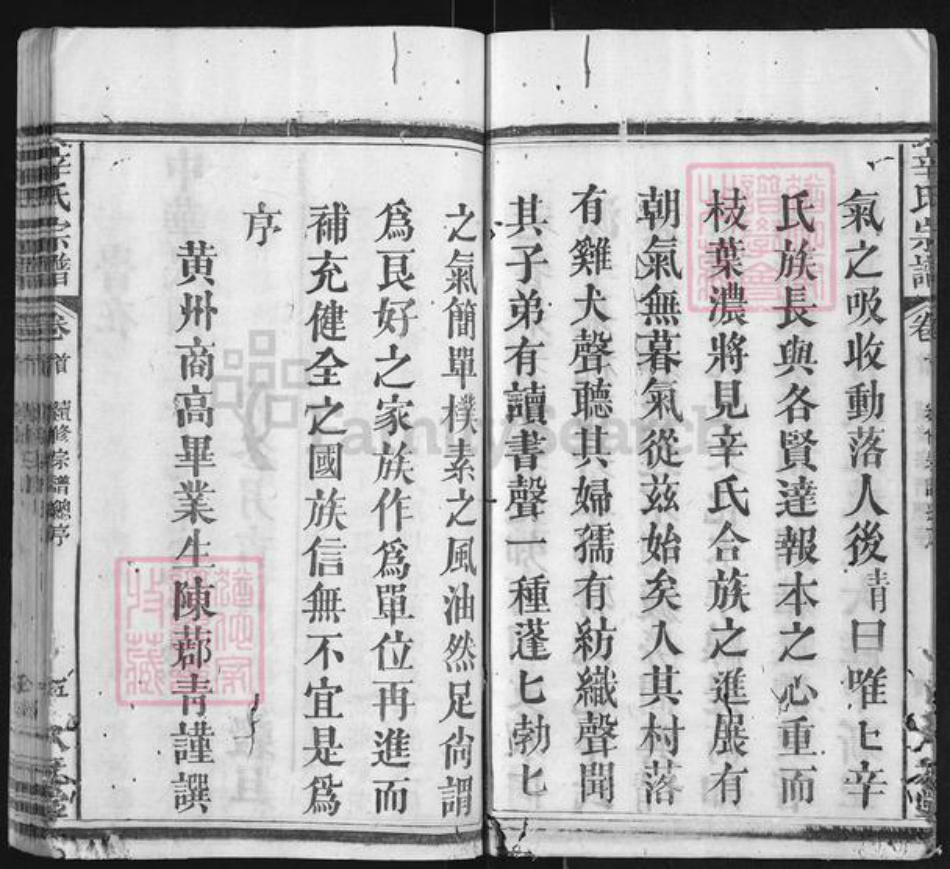 氣之吸收動落人後青曰唯匕辛
氏族長與各賢達報本之心重而
枝葉濃將見辛氏合族之進展有
朝氣無暮氣從茲始矣入其村落
有雞犬聲聽其婦孺有紡織聲聞
其子弟有讀書聲一種蓬匕勃匕
之氣簡單樸素之風油然足尙謂
爲良好之家族作爲單位再進而
補充健全之國族信無不宜是爲
序
黃州商高畢業生陳蔪青謹譔
辛氏宗譜
卷首
續修宗譜總序
五
FamilySearch